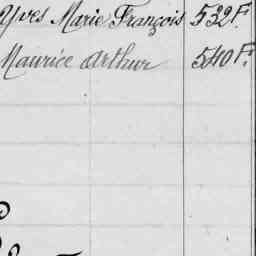 Yves Marie François 532 F.
Maurice Arthur 540 F.